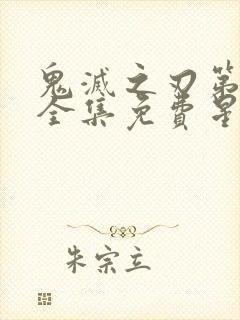 鬼滅之刃第
全集免費星
朱宗立